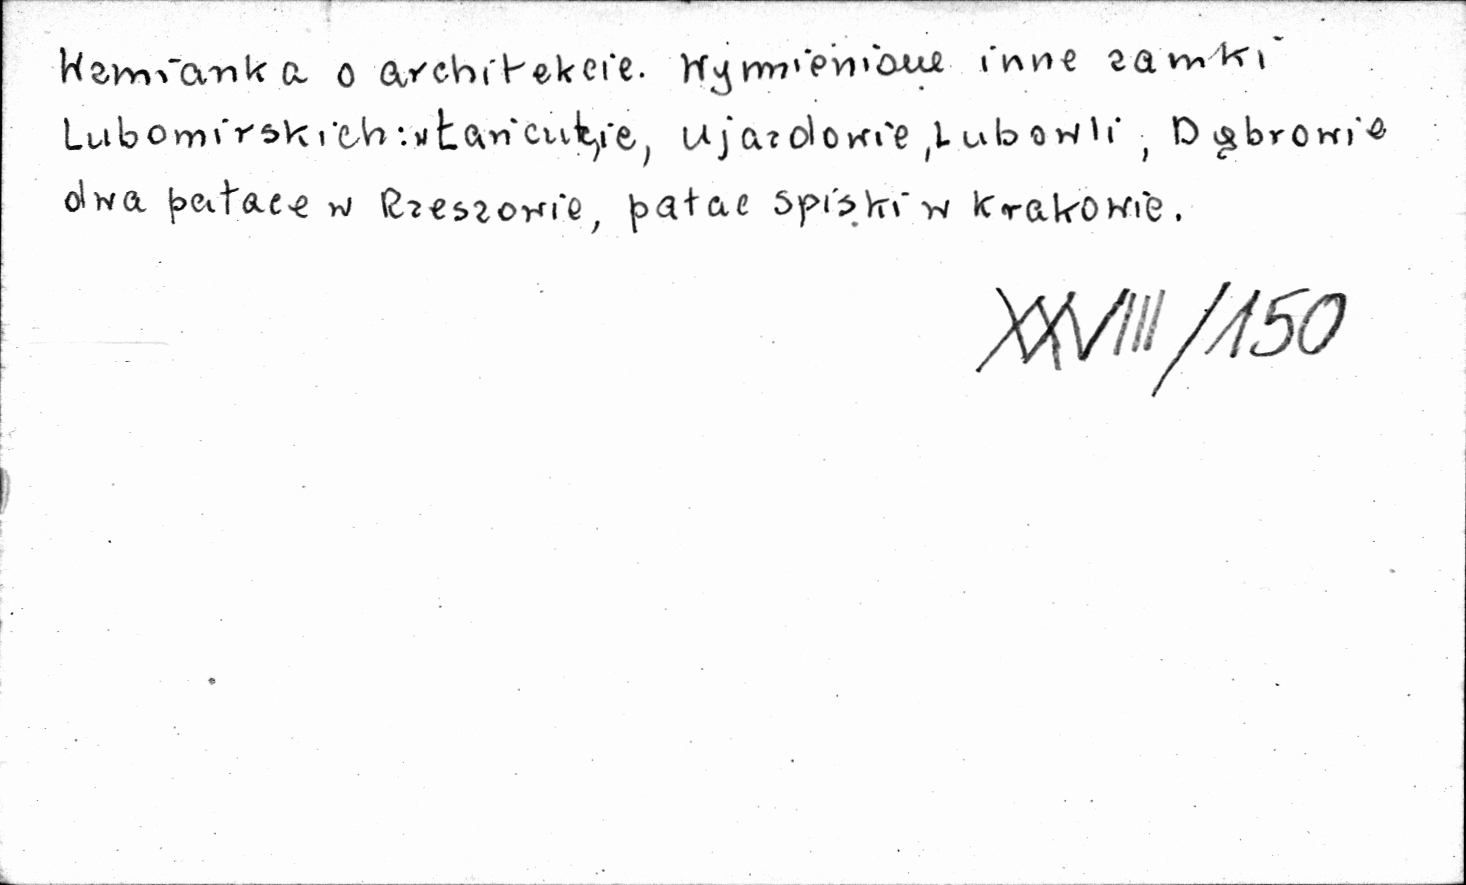 Wzmianka o architekcie. Wymienione inne zamki
Lubomirskich: w Łańcucie, Ujazdowie, Lubowli, Dąbrowie
dwa pałace w Rzeszowie, pałac Spiski w Krakowie.
XXVIII/150